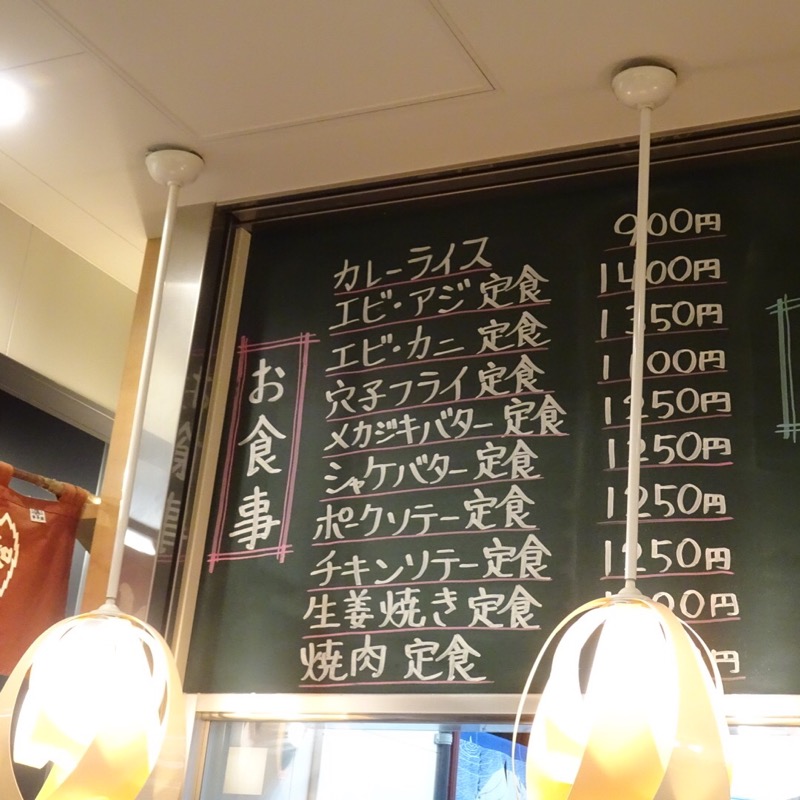 お食事
カレーライス 900円
エビ・アジ定食
エビ・カニ定食
穴子フライ定食
メカジキバター定食
シャケバター定食
ポークソテー定食
チキンソテー定食
生姜焼き定食 円
焼肉定食 円
1400円
1350円
1250円
1250円
1250円
1250円